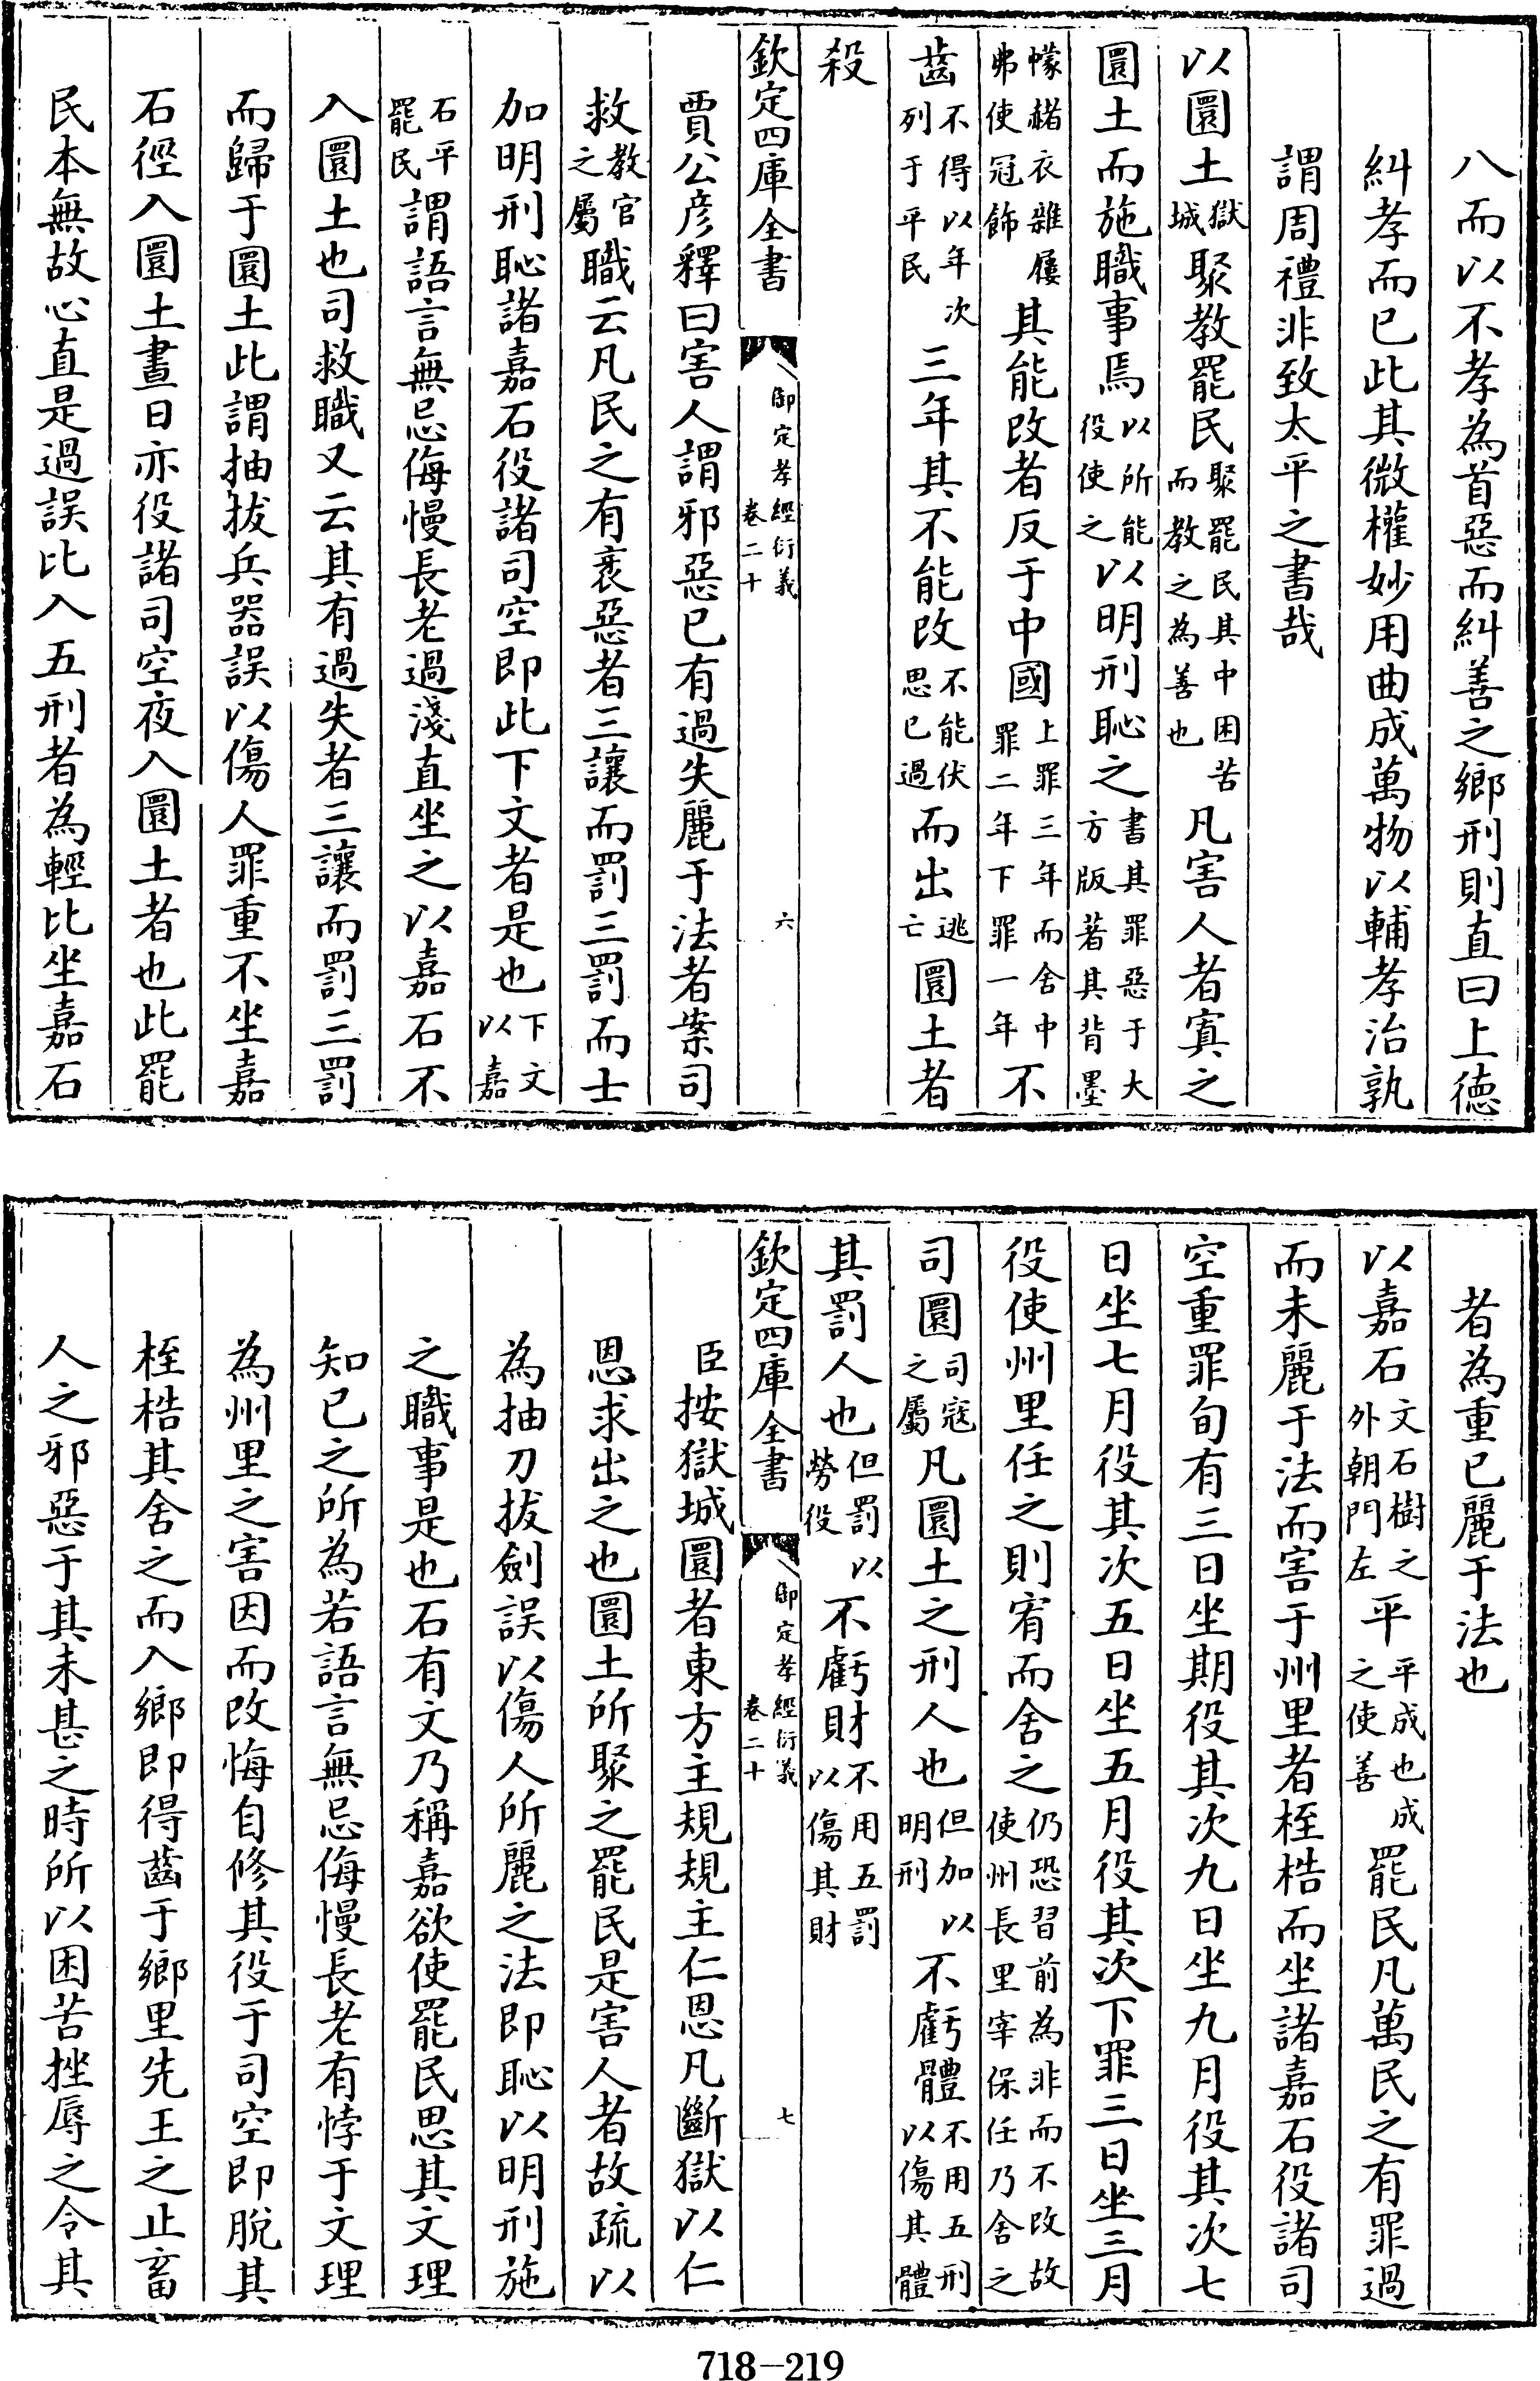 八而以不孝為首惡而糾善之鄉刑則直曰上德
糾孝而已此其微權妙用曲成萬物以輔孝治孰
謂周禮非致太平之書哉
以圜土獄城聚教罷民聚罷民其中困苦而教之為善也凡害人者寘之
圜土而施職事焉以所能役使之以明刑恥之書其罪惡于大方版著其背墨
幪赭衣雜屨弗使冠飾其能改者反于中國上罪三年而舍中罪二年下罪一年不
齒不得以年次列于平民三年其不能改不能伏思已過而出逃亡圜土者
殺
欽定四庫全書 御定孝經衍義 卷二十 六
賈公彥釋曰害人謂邪惡已有過失麗于法者案司
救教官之屬職云凡民之有衺惡者三讓而罰三罰而士
加明刑恥諸嘉石役諸司空即此下文者是也下文以嘉
石平罷民謂語言無忌侮慢長老過淺直坐之以嘉石不
入圜土也司救職又云其有過失者三讓而罰三罰
而歸于圜土此謂抽拔兵器誤以傷人罪重不坐嘉
石徑入圜土晝日亦役諸司空夜入圜土者也此罷
民本無故心直是過誤比入五刑者為輕比坐嘉石
者為重已麗于法也
以嘉石文石樹之外朝門左平平成也成之使善罷民凡萬民之有罪過
而未麗于法而害于州里者桎梏而坐諸嘉石役諸司
空重罪旬有三日坐期役其次九日坐九月役其次七
日坐七月役其次五日坐五月役其次下罪三日坐三月
役使州里任之則宥而舍之仍恐習前為非而不改故使州長里宰保任乃舍之
司圜司寇之屬凡圜土之刑人也但加以明刑不虧體不用五刑以傷其體
其罰人也但罰以勞役不虧財不用五罰以傷其財
欽定四庫全書 御定孝經衍義 卷二十 七
臣按獄城圜者東方主規規主仁恩凡斷獄以仁
恩求出之也圜土所聚之罷民是害人者故疏以
為抽刀拔劍誤以傷人所麗之法即恥以明刑施
之職事是也石有文乃稱嘉欲使罷民思其文理
知已之所為若語言無忌侮慢長老有悖于文理
為州里之害因而改悔自修其役于司空即脫其
桎梏其舍之而入鄉即得齒于鄉里先王之止畜
人之邪惡于其未甚之時所以困苦挫辱之令其
718—219